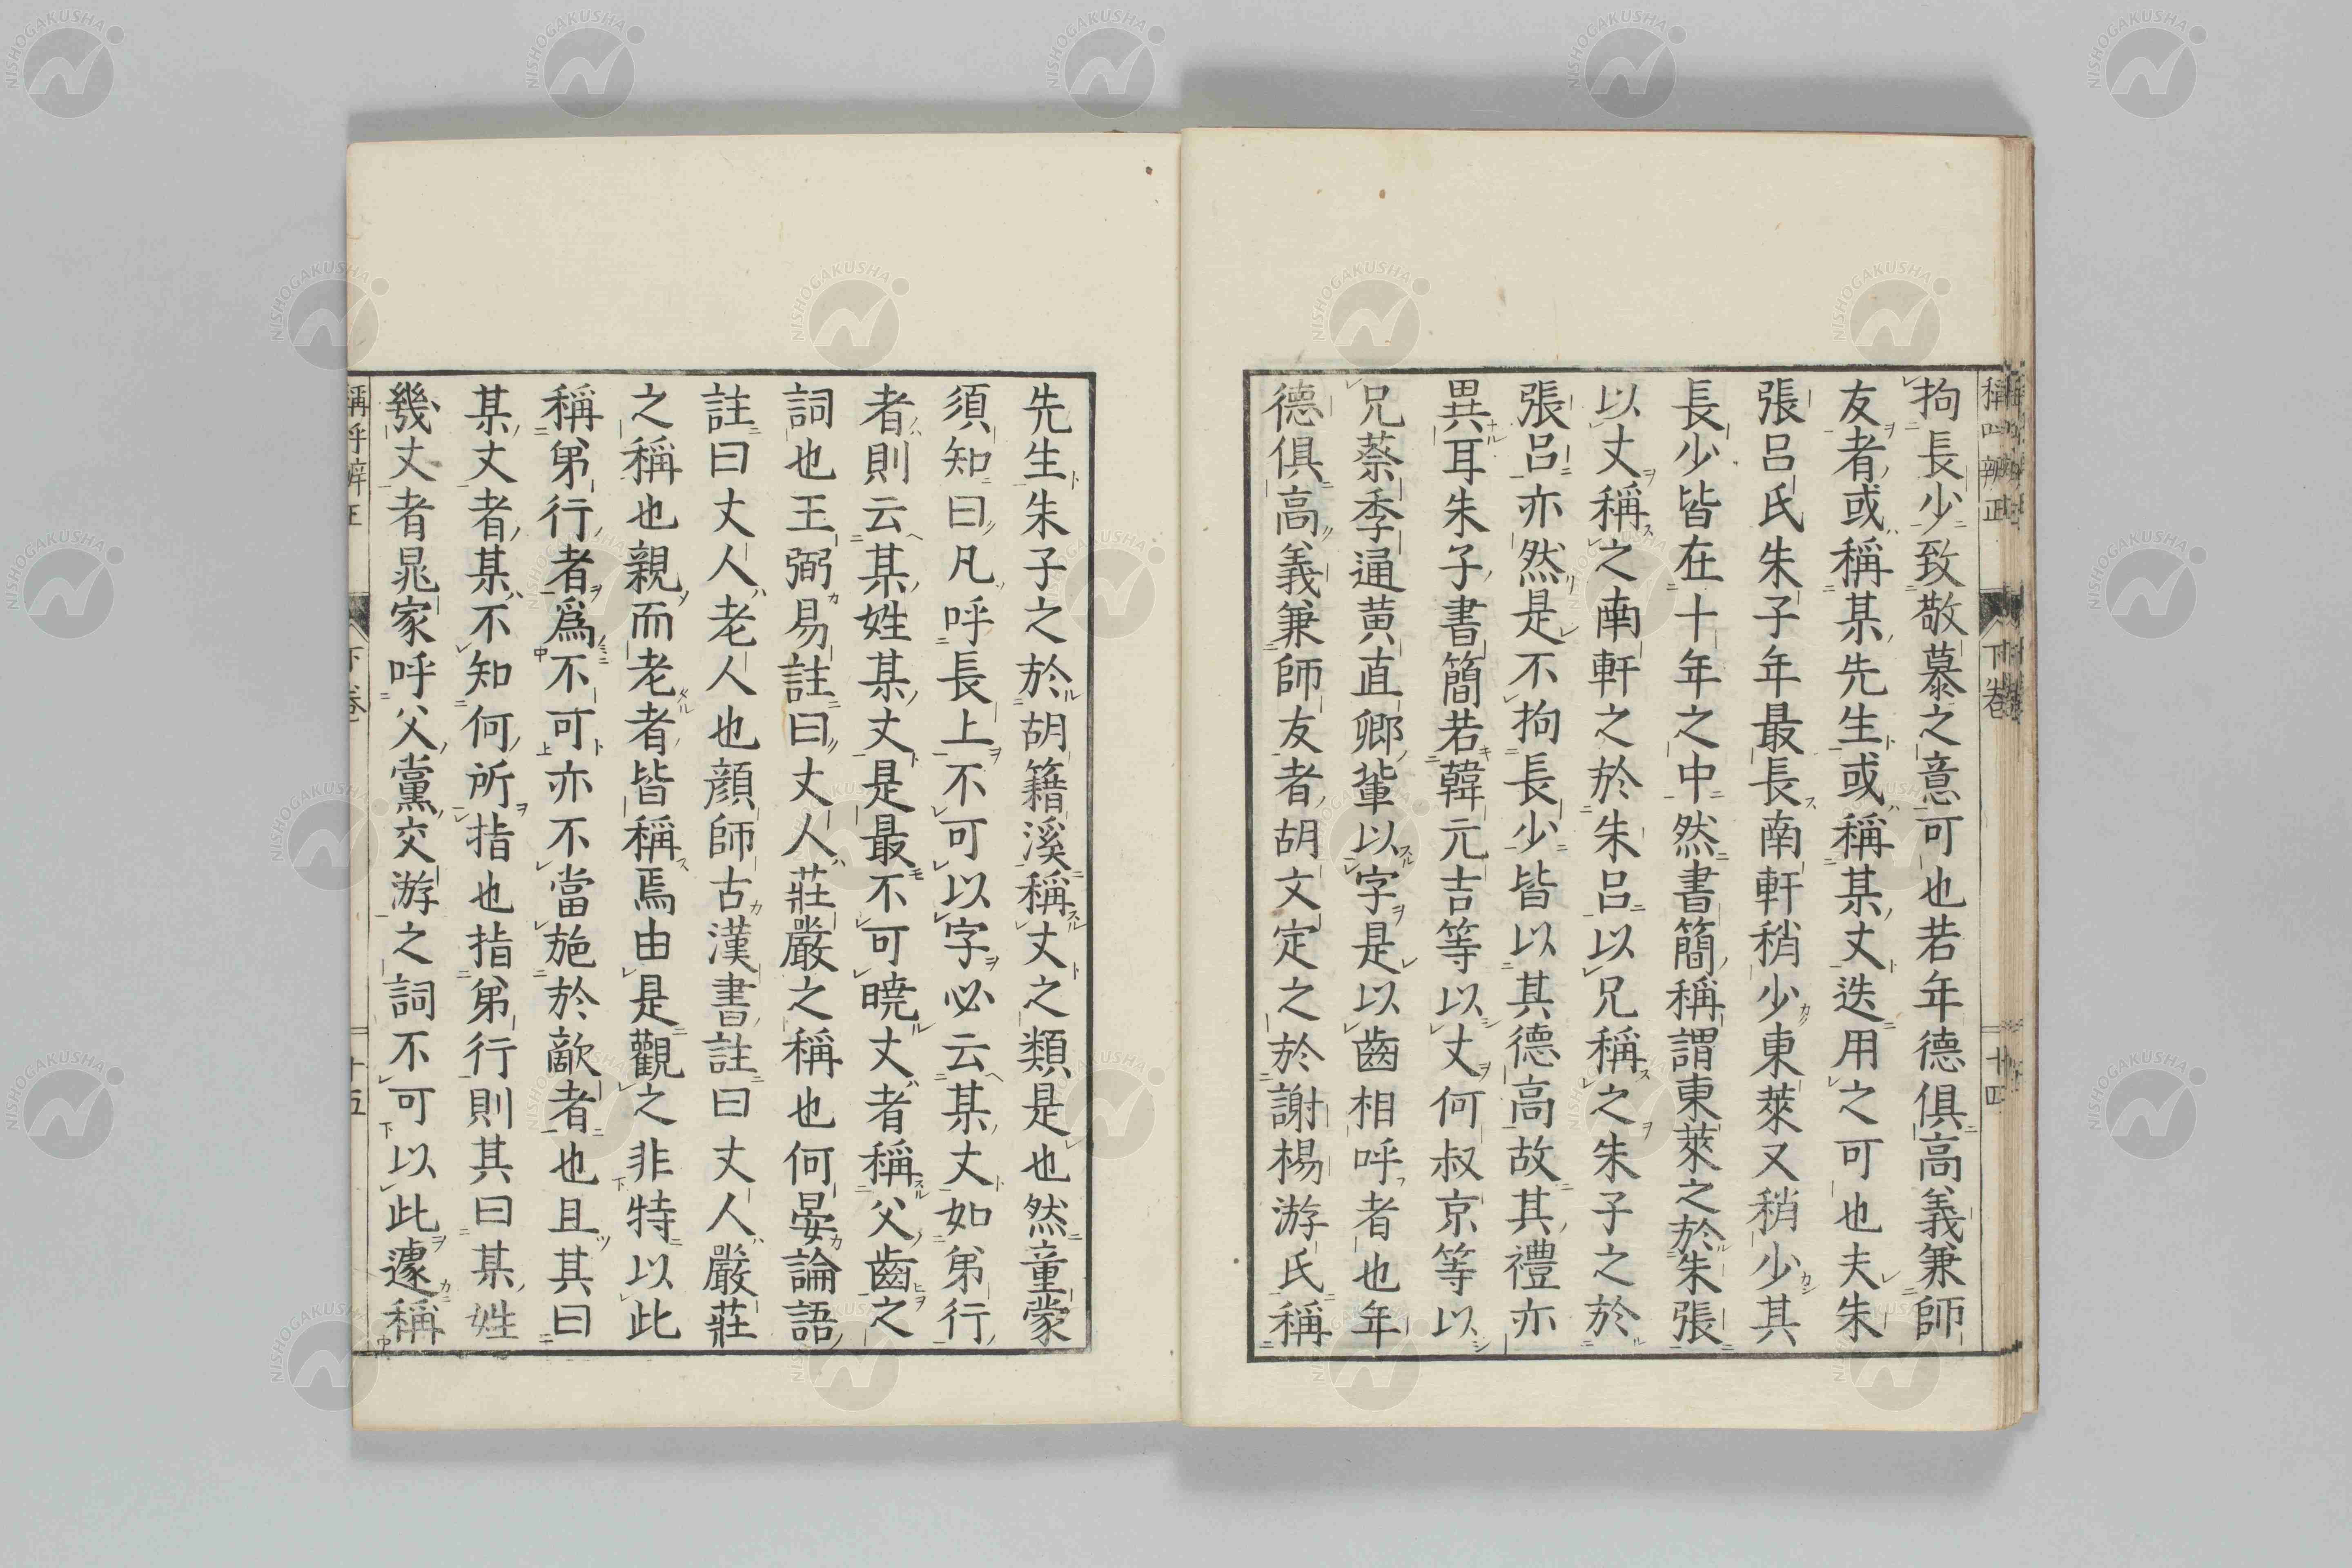 拘長少致敬慕之意可也若年德俱高義兼師
友者或稱某先生或稱某丈迭用之可也夫朱
張呂氏朱子年最長南軒稍少東萊又稍少其
長少皆在十年之中然書簡稱謂東萊之於朱張
以丈稱之南軒之於朱呂以兄稱之朱子之於
張呂亦然是不拘長少皆以其德高故其禮亦
異耳朱子書簡若韓元吉等以丈何叔京等以
兄蔡季通黄直卿輩以字是以齒相呼者也年
德俱高義兼師友者胡文定之於謝楊游氏稱
先生朱子之於胡籍溪稱丈之類是也然童蒙
須知曰凡呼長上不可以字必云某丈如弟行
者則云某姓某丈是最不可曉丈者稱父齒之
詞也王弼易註曰丈人莊嚴之稱也何晏論語
註曰丈人老人也顔師古漢書註曰丈人嚴莊
之稱也親而老者皆稱焉由是觀之非特以此
稱弟行者爲不可亦不當施於敵者也且其曰
某丈者某不知何所指也指弟行則其曰某姓
幾丈者晁家呼父黨交游之詞不可以此遽稱
稱呼辨正 下卷 十四
稱呼辨正 下卷 十五
NISHOGAKUSHA